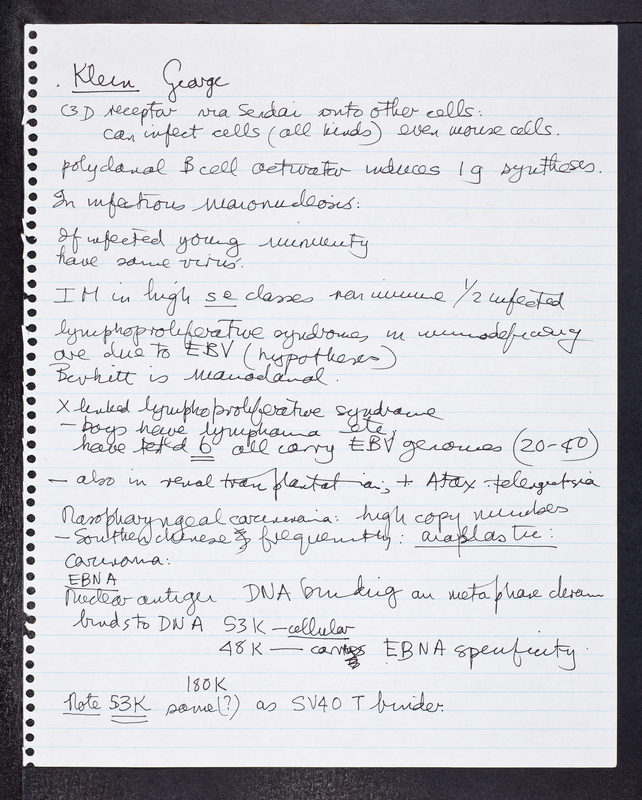 . Klein George
C3D receptor via Sendai onto other cells:
can infect cells (all kinds) even mouse cells.
polyclonal B cell activator induces Ig synthesis.
In infectious mononucleosis:
If infected young immunity
have same virus.
IM in high se classes non immune 1/2 infected
lymphoproliferative syndromes in immunodeficiency
are due to EBV (hypotheses)
Burkitt is monoclonal.
X linked lymphoproliferative syndrome
- boys have lymphoma etc,
have 6 all carry EBV genomes (20-40)
- also in renal transplantation, + Atax-telengectsia
Nasopharyngeal carcinoma: high copy numbers
- Southern chinese frequently: anaplastic:
Carcinoma:
EBNA
Nuclear antigen DNA binding on metaphase chrom
binds to DNA 53K - cellular
48K - carries EBNA specificity
180K
Note 53K same(?) as SV40 T binder.